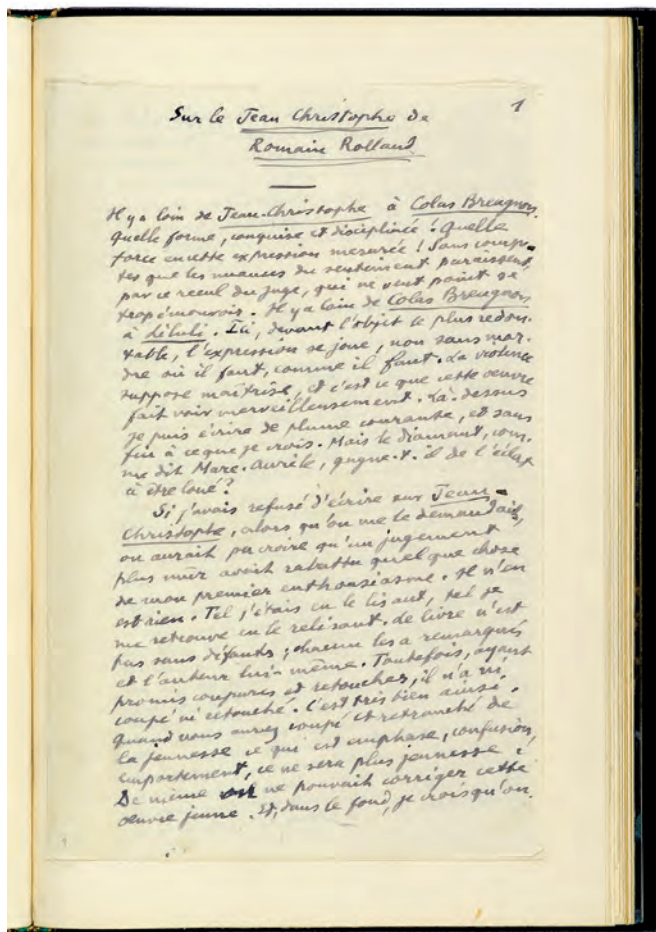 1
Sur le Jean Christophe de
Romain Rolland
Il y a loin de Jean-Christophe à Colas Breugnon.
Quelle forme, conquise et disciplinée ! Quelle
force en cette expression mesurée ! Sans comp-
tes que les nuances du sentiment paraissent,
par ce recul du juge, qui ne veut point se
trop émouvoir. Il y a loin de Colas Breugnon
à Liluli. Ici, devant l'objet le plus redou-
table, l'expression se joue, non sans mor-
dre où il faut, comme il faut. La violence
suppose maîtrise, et c'est ce que cette œuvre
fait voir merveilleusement. Là-dessus
je puis écrire de plume courante, et sans
fin à ce que je crois. Mais le diamant, com-
me dit Marc-Aurèle, gagne-t-il de l'éclat
à être loué ?
Si j'avais refusé d'écrire sur Jean-
Christophe, alors qu'on me le demandait,
on aurait pu croire qu'un jugement
plus mûr avait rabattu quelque chose
de mon premier enthousiasme. Il n'en
est rien. Tel j'étais en le lisant, tel je
me retrouve en le relisant. Le livre n'est
pas sans défauts ; chacun les a remarqués
et l'auteur lui-même. Toutefois, ayant
promis coupures et retouches, il n'a ni
coupé ni retouché. C'est très bien ainsi.
Quand vous aurez coupé et retranché de
la jeunesse ce qui est emphase, confusion,
emportement, ce ne sera plus jeunesse ;
De même on ne pouvait corriger cette
œuvre jeune. Et, dans le fond, je crois qu'on